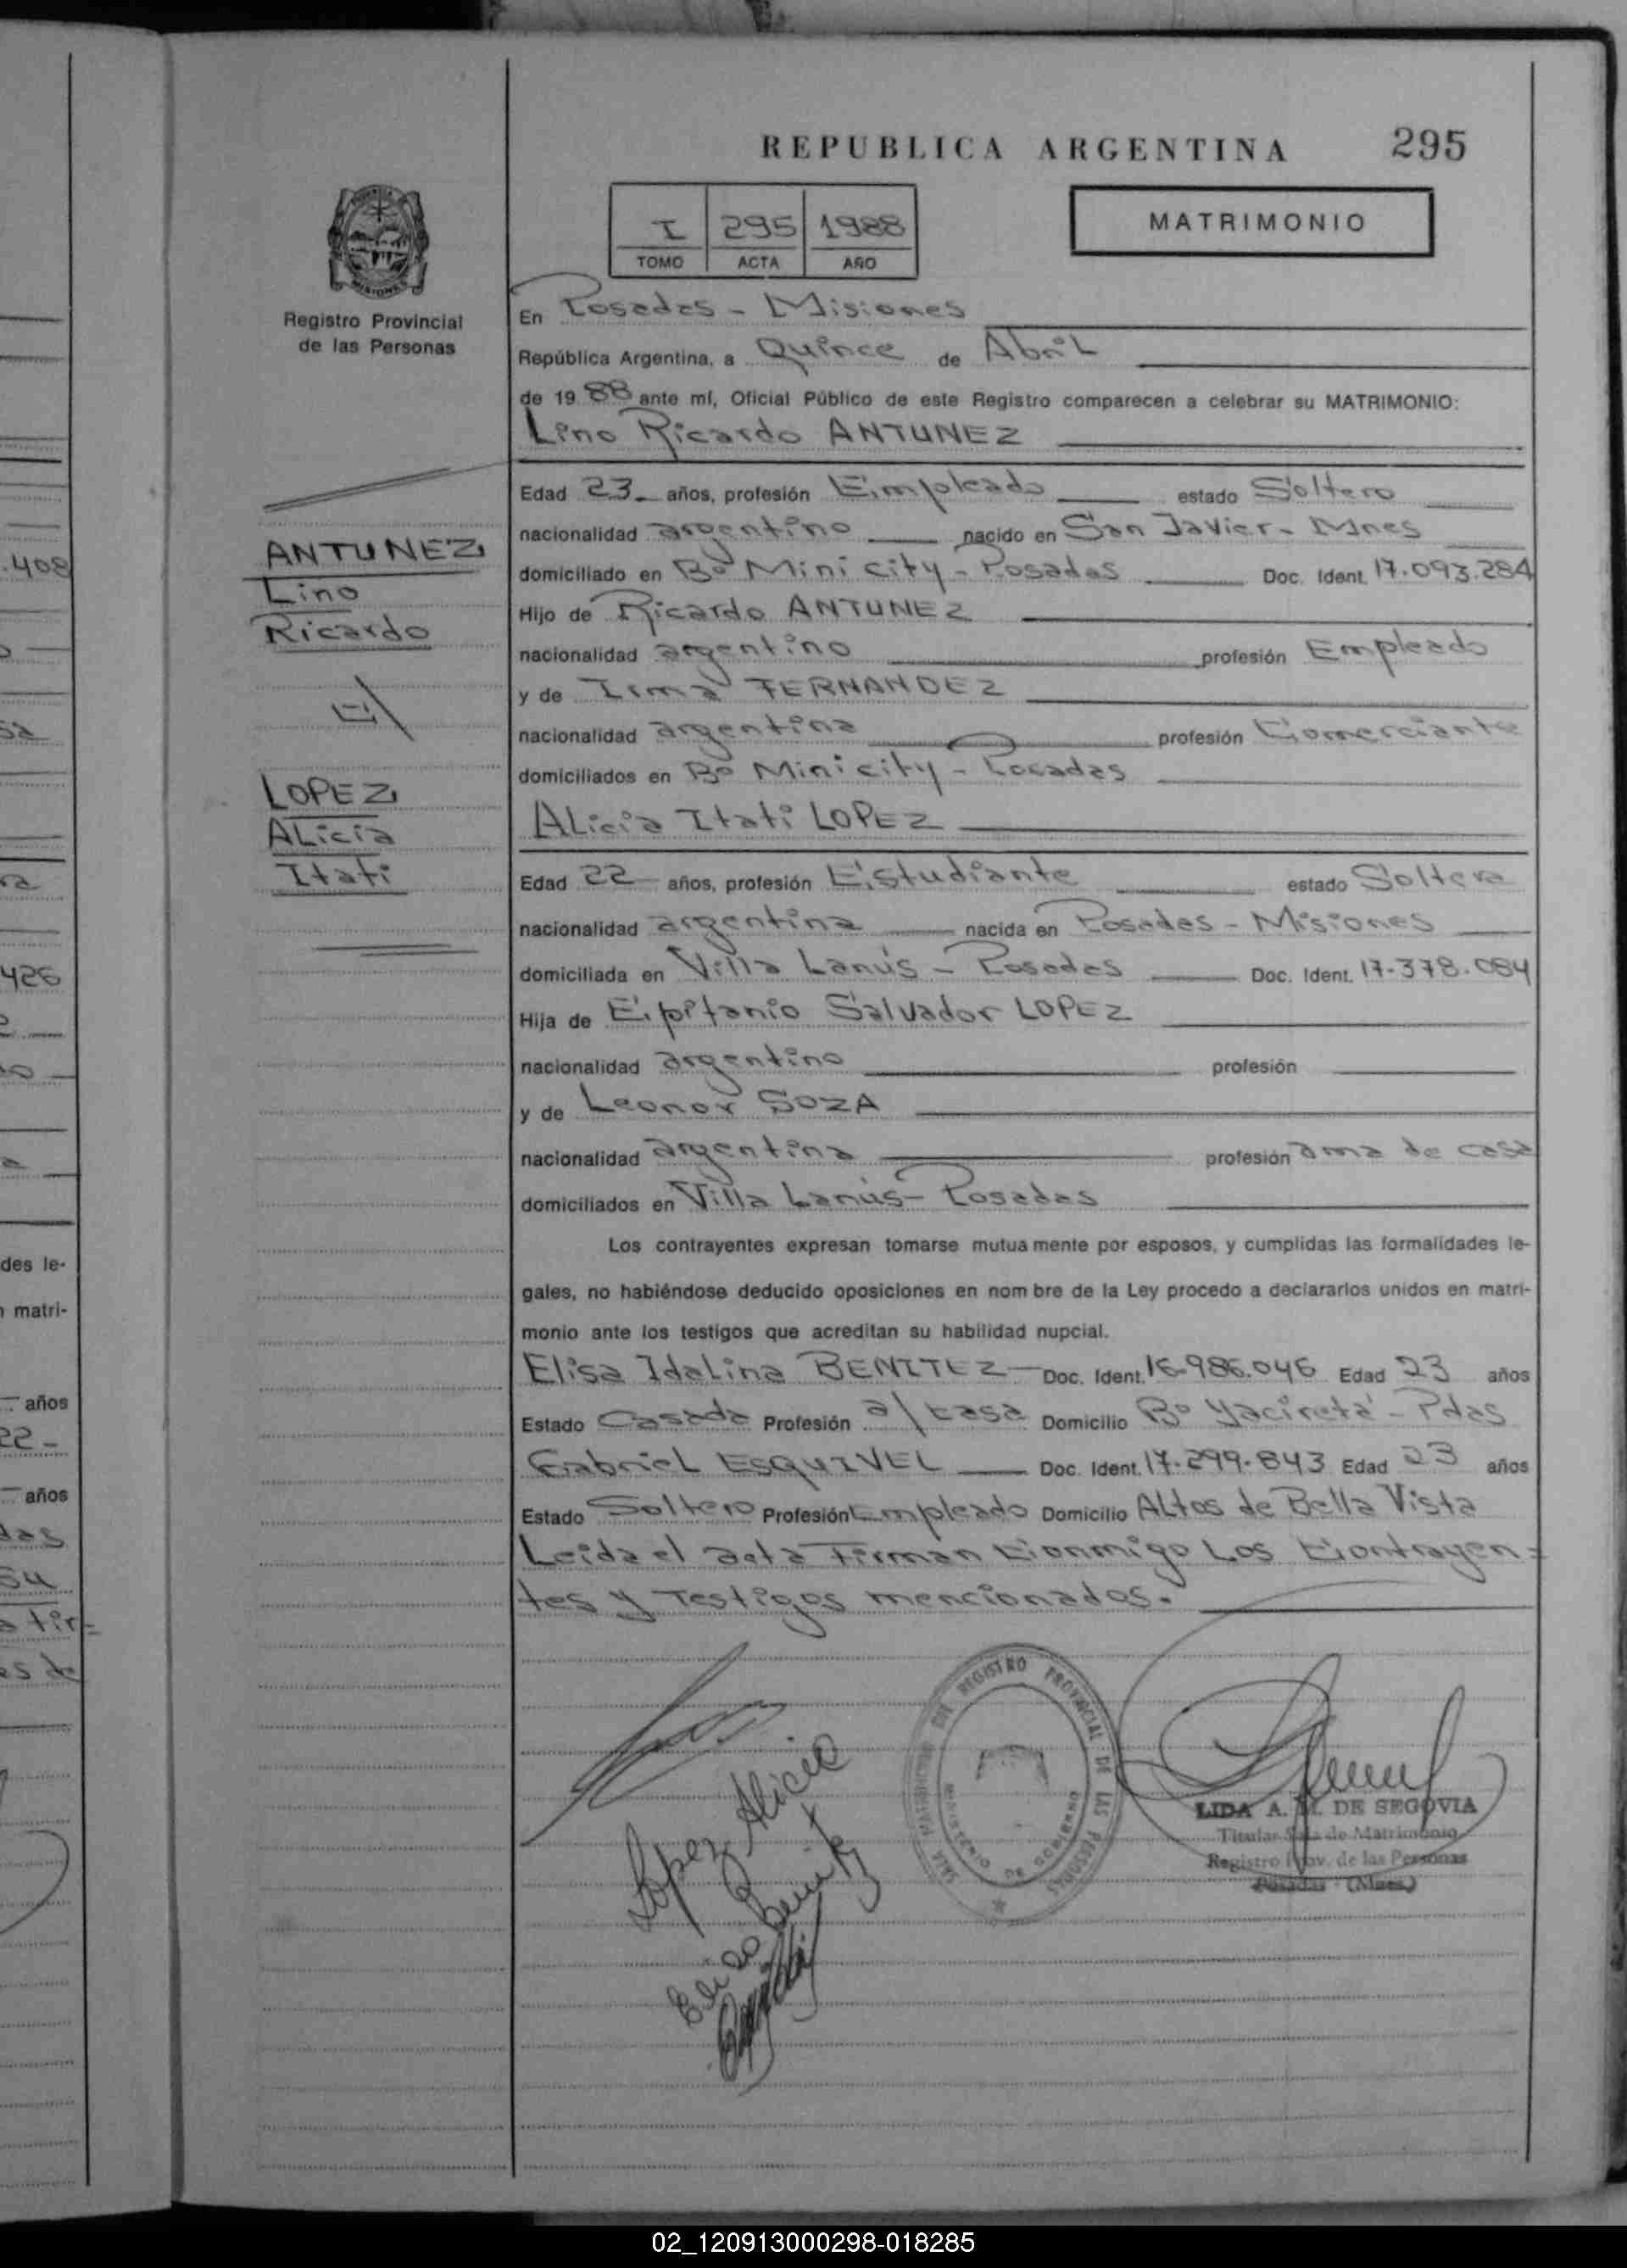 REPUBLICA ARGENTINA 295
MATRIMONIO
I 295 1988
TOMO ACTA AÑO
Registro Provincial
de las Personas
En Posadas - Misiones
República Argentina, a Quince de Abril
de 1988 ante mí, Oficial Público de este Registro comparecen a celebrar su MATRIMONIO:
Lino Ricardo ANTUNEZ
Edad 23 años, profesión Empleado estado Soltero
nacionalidad argentino nacido en San Javier - Mnes
domiciliado en Bº Mini city - Posadas Doc. Ident. 17.093.284
Hijo de Ricardo ANTUNEZ
nacionalidad argentino profesión Empleado
y de Irma FERNANDEZ
nacionalidad argentina profesión Comerciante
domiciliados en Bº Mini city - Posadas
Alicia Itati LOPEZ
Edad 22 años, profesión Estudiante estado Soltera
nacionalidad argentina nacida en Posadas - Misiones
domiciliada en Villa Lanús - Posadas Doc. Ident. 17.378.084
Hija de Epifanio Salvador LOPEZ
nacionalidad argentino profesión
y de Leonor SOZA
nacionalidad argentina profesión ama de casa
domiciliados en Villa Lanús - Posadas
Los contrayentes expresan tomarse mutuamente por esposos, y cumplidas las formalidades le-
gales, no habiéndose deducido oposiciones en nom bre de la Ley procedo a declararlos unidos en matri-
monio ante los testigos que acreditan su habilidad nupcial.
Elisa Idalina BENITEZ Doc. Ident. 16.986.046 Edad 23 años
Estado Casada Profesión a/casa Domicilio Bº Yacireta' - Pdas
Gabriel ESQUIVEL Doc. Ident. 17.299.843 Edad 23 años
Estado Soltero Profesión Empleado Domicilio Altos de Bella Vista
Leida el acta Firman Conmigo Los Contrayen=
tes y Testigos mencionados.
ANTUNEZ
Lino
Ricardo
c/
LOPEZ
Alicia
Itati
Lopez Alicia
Elisa Benitez
REGISTRO PROVINCIAL DE LAS PERSONAS
MINISTERIO DE GOBIERNO
LIDA A. M. DE SEGOVIA
Titular Sala de Matrimonio
Registro Prov. de las Personas
Posadas (Mnes.)
408
426
des le-
matri-
años
22 -
años
02_120913000298-018285